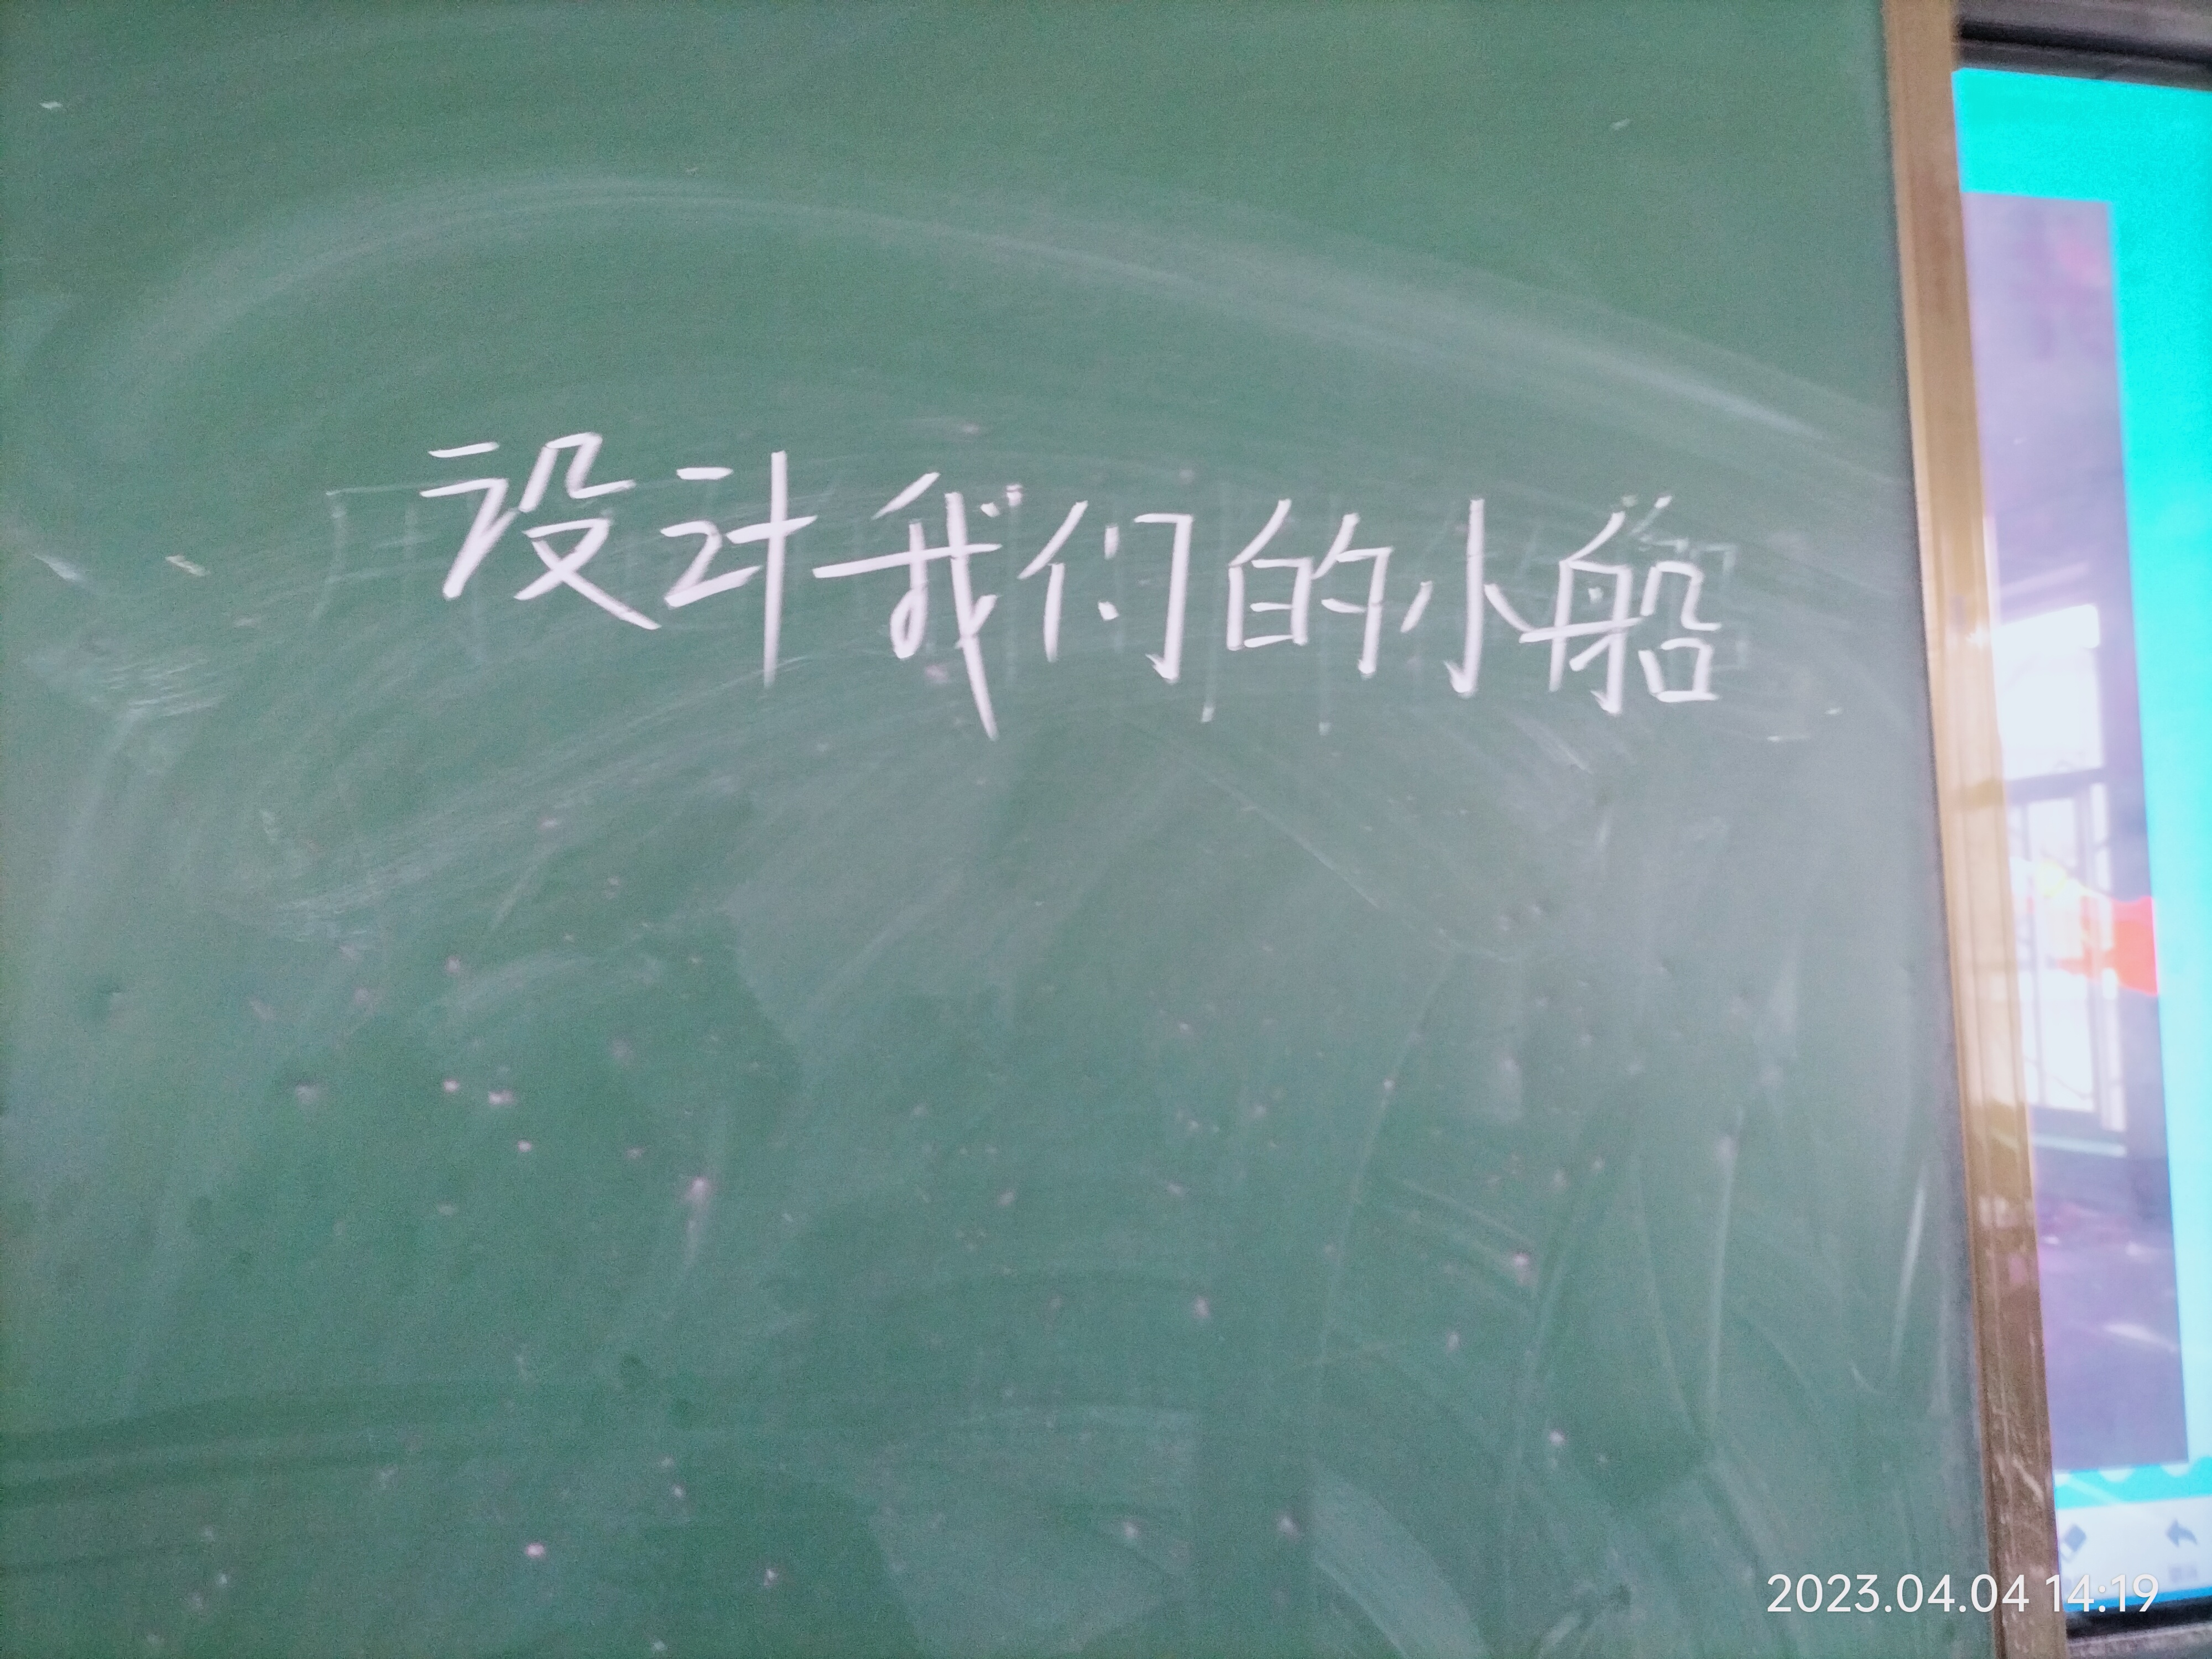 设计我们的小船
2023.04.04 14:19